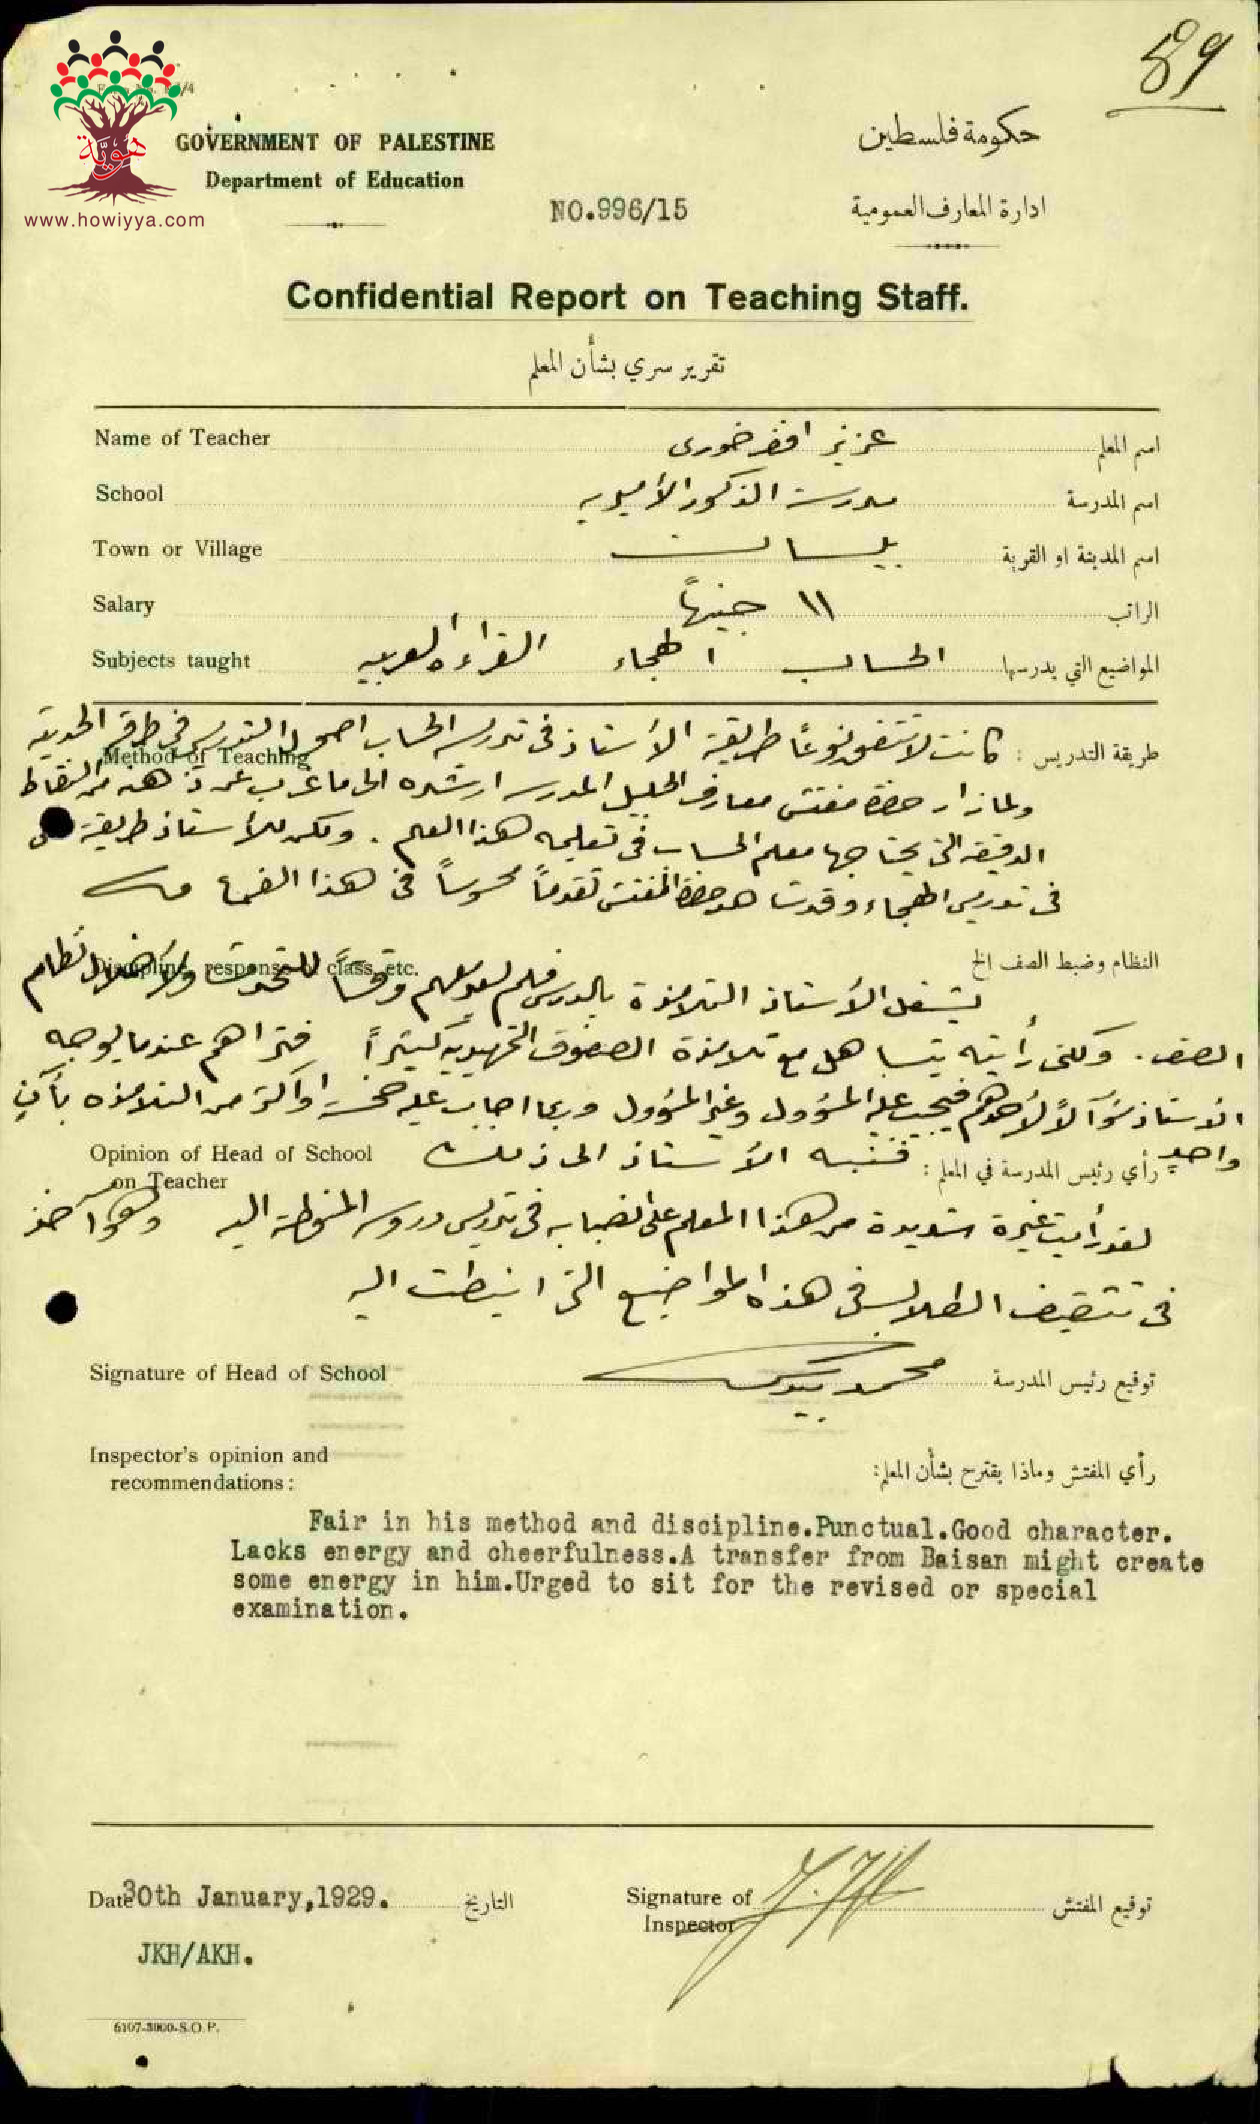 89
هويّة
www.howiyya.com
GOVERNMENT OF PALESTINE
Department of Education
حكومة فلسطين
ادارة المعارف العمومية
NO.996/15
Confidential Report on Teaching Staff.
تقرير سري بشأن المعلم
Name of Teacher عزيز افندي خوري اسم المعلم
School مدرسة الذكور الأميرية اسم المدرسة
Town or Village بيسان اسم المدينة او القرية
Salary ١١ جنيهاً الراتب
Subjects taught الحساب الهجاء القراءة العربية المواضيع التي يدرسها
Method of Teaching طريقة التدريس : كانت لا تتفق نوعاً طريقة الأستاذ في تدريس الحساب اصول التدريس في طرقه الحديثة
ولما زار حضرة مفتش معارف الجليل المدرسة ارشده الى ما غرب عن ذهنه من النقاط
الدقيقة التي يحتاجها معلم الحساب في تعليمه هذا العلم . ولكن للأستاذ طريقة
في تدريس الهجاء وقد حضرة المفتش تقدماً محسوساً في هذا
Discipline, response of class, etc. النظام وضبط الصف الخ
يشغل الأستاذ التلامذة بالدرس فلم يعد لهم وقتاً للتحدث ولا نظام
الصف . ولكني رأيته يتساهل مع تلامذة الصفوف التمهيدية كثيراً فتراهم عندما يوجه
الأستاذ سؤالاً لأحدهم فيجيب عليه المسؤول وغير المسؤول وربما اجاب عليه خمسة او اكثر من التلامذه بآن
واحد فننبه الأستاذ الى ذلك
Opinion of Head of School
on Teacher
رأي رئيس المدرسة في المعلم :
لقد رأيت غيرة شديدة من هذا المعلم على انصبابه في تدريس دروسه المنوطة اليه وهو آخذ
في تثقيف الطلاب في هذه المواضيع التي انيطت اليه
Signature of Head of School محمد توقيع رئيس المدرسة
Inspector's opinion and
recommendations :
رأي المفتش وماذا يقترح بشأن المعلم:
Fair in his method and discipline.Punctual.Good character.
Lacks energy and cheerfulness.A transfer from Baisan might create
some energy in him.Urged to sit for the revised or special
examination.
Date 30th January,1929. التاريخ
Signature of
Inspector
توقيع المفتش
JKH/AKH.
6107-3000-S.O.P.